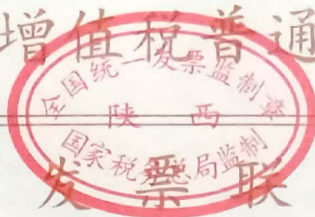 增值税普通
全国统一发票监制章
陕西
国家税务总局监制
发票联